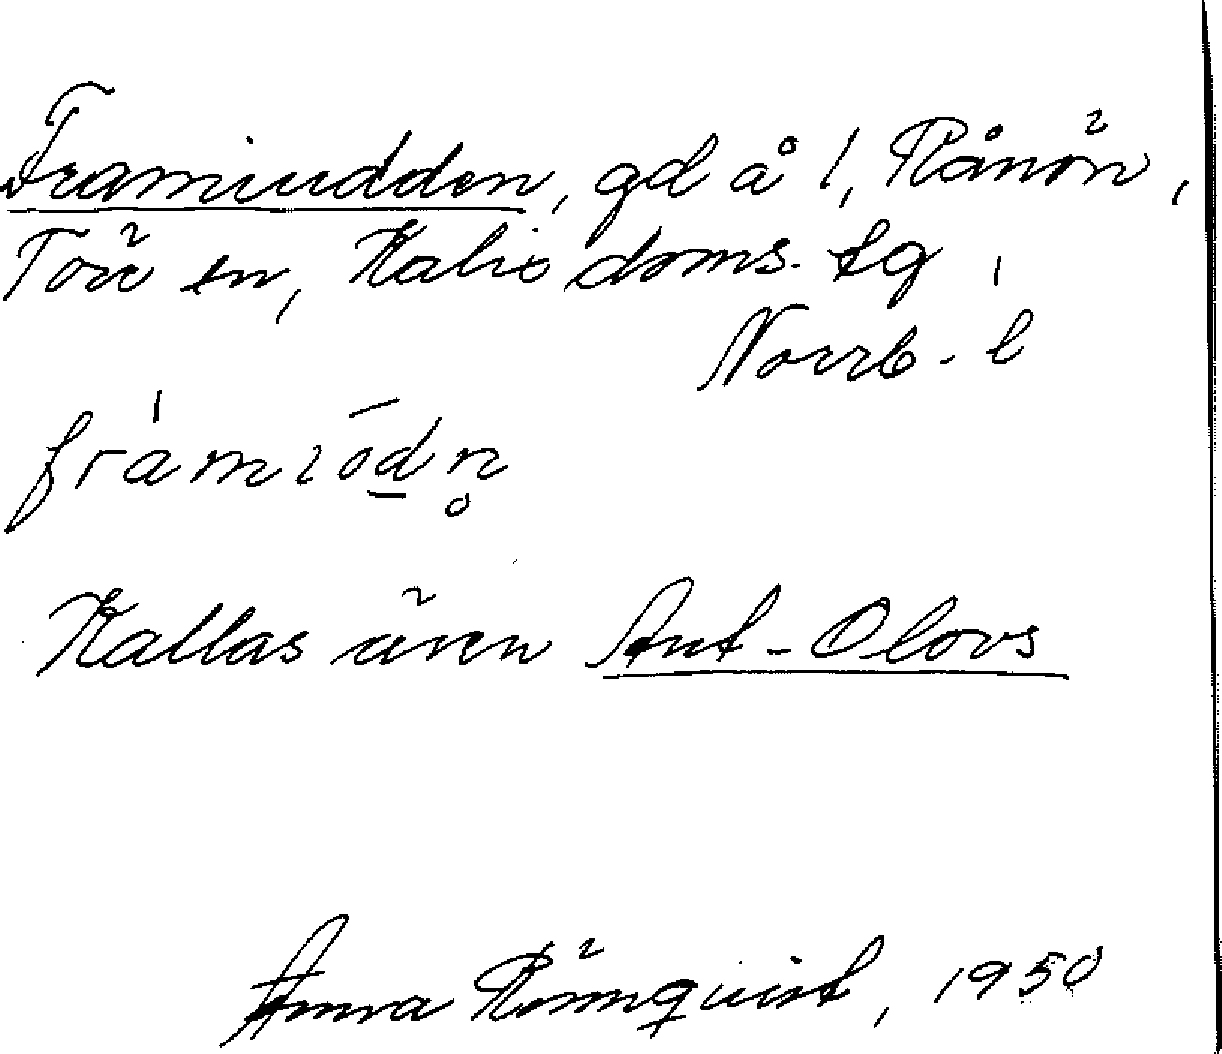 Framiudden, gd å l, Rånön,
Töre sn, Kalix doms. tg,
Norrb. l
framiodn̥
Kallas även Ant-Olovs
Anna Rönnquist, 1950